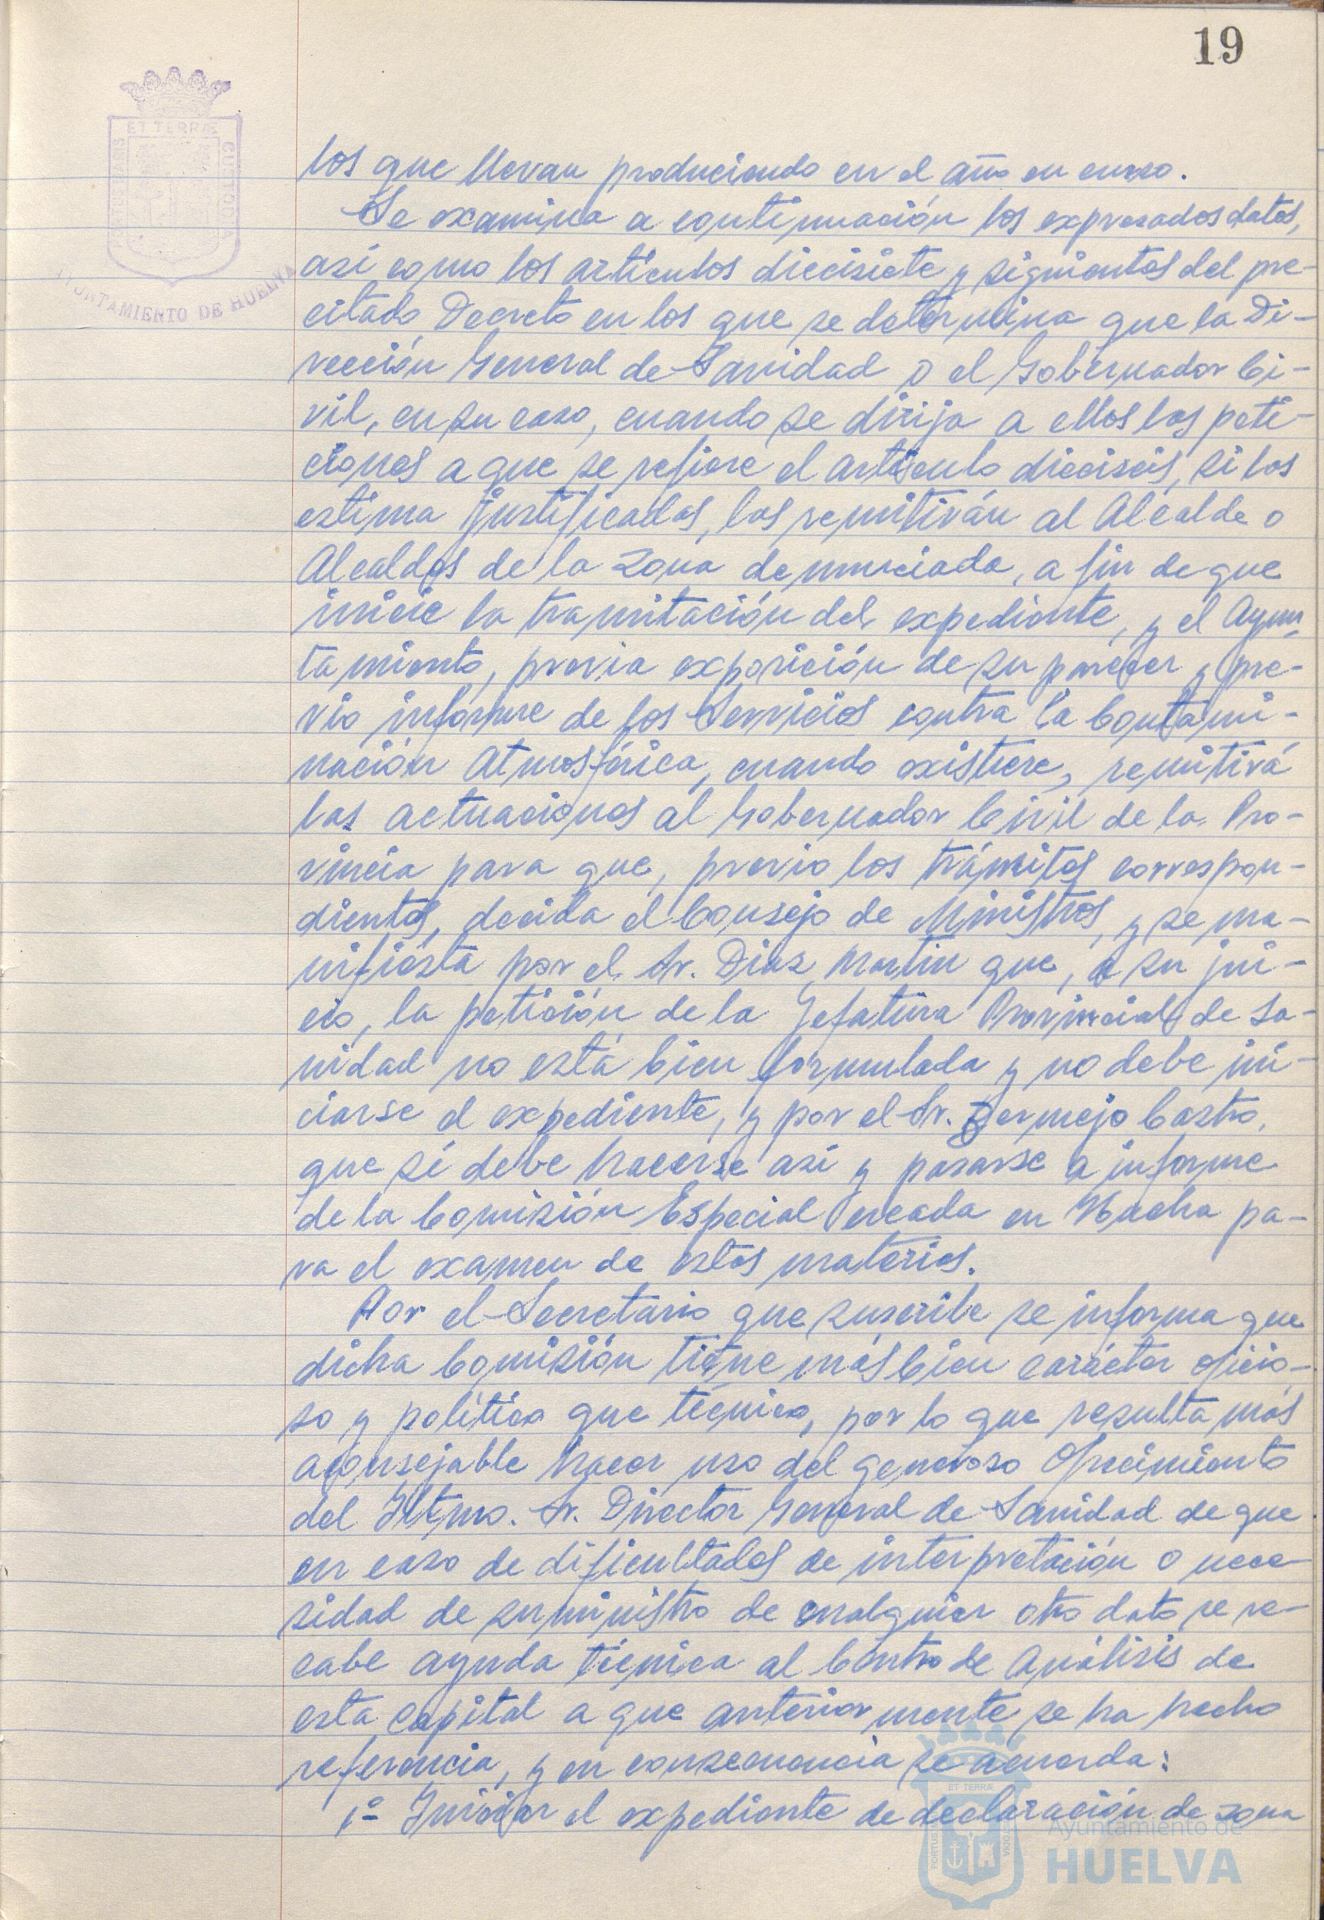 19
ET TERRÆ
PORTUS MARIS
CUSTODIA
AYUNTAMIENTO DE HUELVA
los que llevan produciendo en el año en curso.
Se examina a continuación los expresados datos,
así como los artículos diecisiete y siguientes del pre-
citado Decreto en los que se determina que la Di-
rección General de Sanidad o el Gobernador Ci-
vil, en su caso, cuando se dirija a ellos las peti-
ciones a que se refiere el artículo dieciseis, si los
estima justificados, los remitirán al Alcalde o
Alcaldes de la zona denunciada, a fin de que
inicie la tramitación del expediente, y el Ayun-
tamiento, previa exposición de su parecer y pre-
vio informe de los Servicios contra la Contami-
nación Atmosférica, cuando existiere, remitirá
las actuaciones al Gobernador Civil de la Pro-
vincia para que, previo los trámites correspon-
dientes, decida el Consejo de Ministros, y se ma-
nifiesta por el Sr. Diaz Martin que, a su jui-
cio, la petición de la Jefatura Provincial de Sa-
nidad no está bien formulada y no debe ini-
ciarse el expediente, y por el Sr. Bermejo Castro,
que sí debe hacerse así y pasarse a informe
de la Comisión Especial creada en Huelva pa-
ra el examen de estas materias.
Por el Secretario que suscribe se informa que
dicha Comisión tiene más bien carácter oficio-
so y político que técnico, por lo que resulta más
aconsejable hacer uso del generoso ofrecimiento
del Iltmo. Sr. Director General de Sanidad de que
en caso de dificultades de interpretación o nece-
sidad de suministro de cualquier otro dato se re-
cabe ayuda técnica al Centro de Análisis de
esta capital a que anteriormente se ha hecho
referencia, y en consecuencia se acuerda:
1º- Iniciar el expediente de declaración de zona
ET TERRÆ
Ayuntamiento de
HUELVA